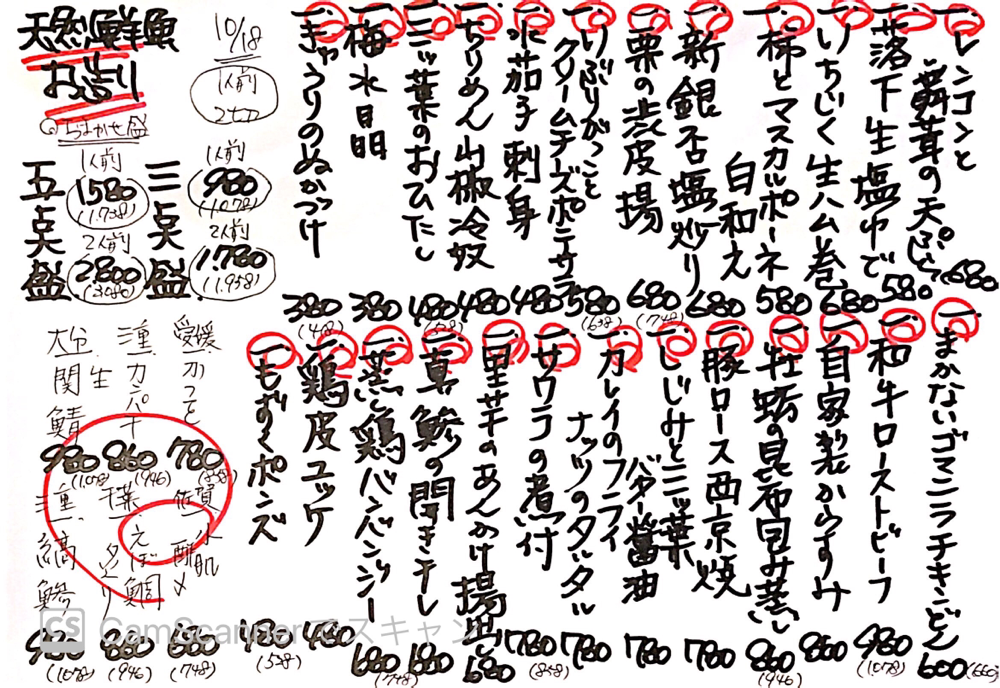 天然鮮魚
お造り
10/18
1人前
2切
おまかせ盛
三点盛
1人前
980
(1,078)
2人前
1.780
(1.958)
五点盛
1人前
1580
(1.738)
2人前
2.800
(3080)
愛媛
かつを
780
(858)
三重
カンパチ
860
(946)
大分
関生鯖
980
(1078)
佐賀
水肌
酢〆
680
(748)
千葉
えぼ鯛
タタリ
860
(946)
三重
縞鯵
980
(1078)
一、レンコンと
舞茸の天ぷら
680
一、落下生塩ゆで
580
一、いちじく生ハム巻
680
一、柿とマスカルポーネ
白和え
580
一、新銀杏塩炒り
680
一、栗の渋皮揚
680
(748)
一、いぶりがっこと
クリームチーズポテサラ
580
(638)
一、水茄子刺身
480
一、ちりめん山椒冷奴
480
一、三ッ葉のおひたし
480
(528)
一、梅水晶
380
一、きゅうりのぬかづけ
380
(418)
一、まかないゴマニラチキンどん
600
(660)
一、和牛ローストビーフ
980
(1078)
一、自家製からすみ
860
一、牡蛎の昆布包み蒸し
860
(946)
一、豚ロース西京焼
780
一、しじみと三ッ葉
バター醤油
780
一、カレイのフライ
ナッツのタルタル
780
一、サワラの煮付
780
(858)
一、里芋のあんかけ揚出し
680
一、真鯵の開き干し
680
一、蒸し鶏バンバンジー
680
(748)
一、鶏皮ユッケ
480
一、もずくポンズ
480
(528)
CS CamScanner でスキャン